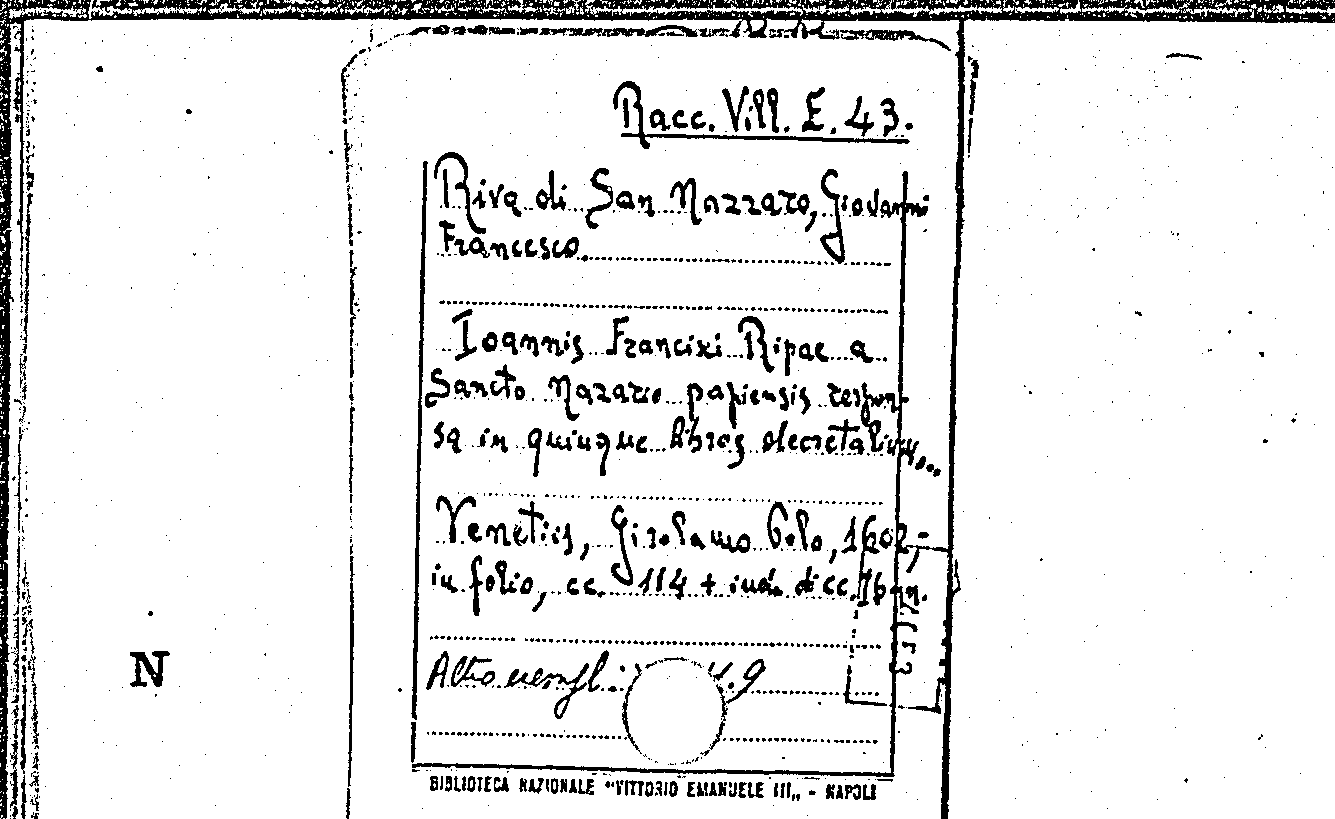 Racc. Vill. E. 43.
Riva di San Nazzaro, Giovanni
Francesco.
Ioannis Francixi Ripae a
Sancto Nazario papiensis respon-
sa in quinque libros decretalium...
Venetiis, Girolamo Polo, 1602,-
in folio, cc. 114 + ind. di cc. 16 nn.
Altro esempl.: 4.9
N
BIBLIOTECA NAZIONALE "VITTORIO EMANUELE III„ - NAPOLI